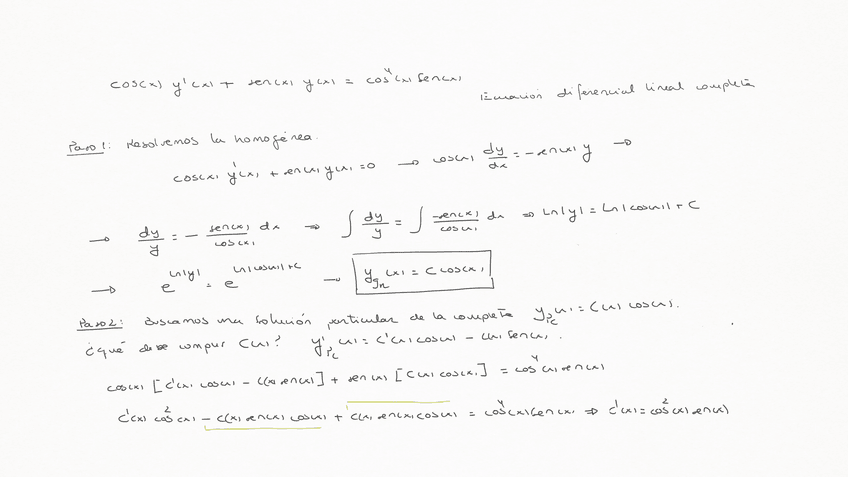 cos(x) y'(x) + sen(x) y(x) = cos⁴(x) sen(x)
Ecuación diferencial lineal completa
Paso 1: Resolvemos la homogénea.
cos(x) y'(x) + sen(x) y(x) = 0 → cos(x) dy/dx = -sen(x) y →
→ dy/y = - sen(x)/cos(x) dx ⇒ ∫ dy/y = ∫ -sen(x)/cos(x) dx ⇒ Ln|y| = Ln|cos(x)| + C
→ e^(Ln|y|) = e^(Ln|cos(x)|+C) → y_gh(x) = C cos(x)
Paso 2: Buscamos una solución particular de la completa y_pc(x) = C(x) cos(x).
¿qué debe cumplir C(x)? y'_pc(x) = C'(x) cos(x) - C(x) sen(x).
cos(x) [C'(x) cos(x) - C(x) sen(x)] + sen(x) [C(x) cos(x)] = cos⁴(x) sen(x)
C'(x) cos²(x) - C(x) sen(x) cos(x) + C(x) sen(x) cos(x) = cos⁴(x) sen(x) ⇒ C'(x) = cos²(x) sen(x)